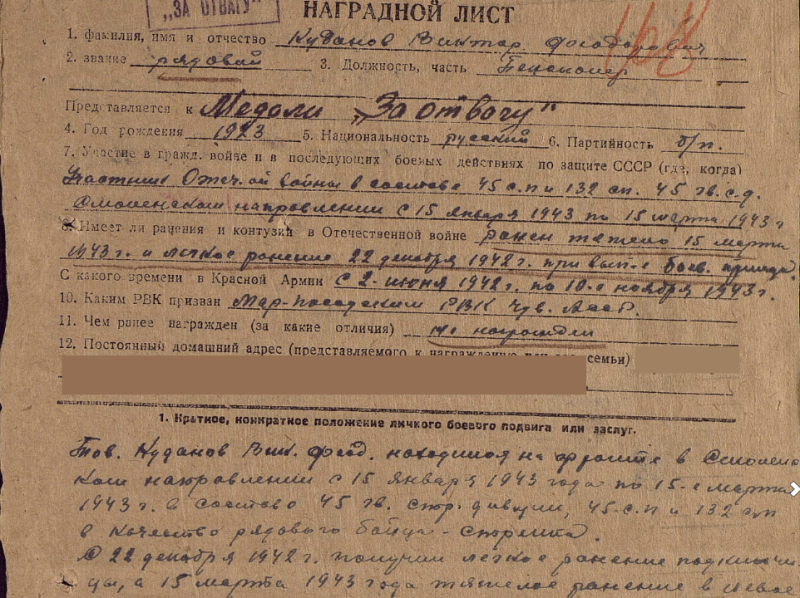 „ЗА ОТВАГУ"
НАГРАДНОЙ ЛИСТ
1. фамилия, имя и отчество Куданов Виктар Феодорович
2. звание рядовий 3. Должность, часть Пенсионер
Представляется к Медали „За отвогу"
4. Год рождения 1923 5. Национальность русский 6. Партийность б/п.
7. Участие в гражд. войне и в последующих боевых действиях по защите СССР (где, когда)
Участник Отеч.ой войны в составе 45 с.п и 132 сп. 45 гв. с.д.
Смоленском направлении с 15 января 1943 по 15 марта 1943 г
8. Имеет ли ранения и контузии в Отечественной войне ранен тяжело 15 марта
1943 г. и легкое ранение 22 декабря 1942 г. при вып-е боев. приказа.
С какого времени в Красной Армии с 2 июня 1942 г. по 10-е ноября 1943 г.
10. Каким РВК призван Мар-Посадским РВК Чув. АССР.
11. Чем ранее награжден (за какие отличия) не награжден
12. Постоянный домашний адрес (представляемого к награждению или его семьи)
1. Краткое, конкретное положение личного боевого подвига или заслуг.
Тов. Куданов Вик. Феод. находился на фронте в Смоленс
ком направлении с 15 января 1943 года по 15-е марта
1943 г. в составе 45 гв. стр. дивизии, 45-с.п и 132 сп
в качестве рядового бойца-стрелка.
22 декабря 1942 г. получил легкое ранение
цы, а 15 марта 1943 года тяжелое ранение в левое